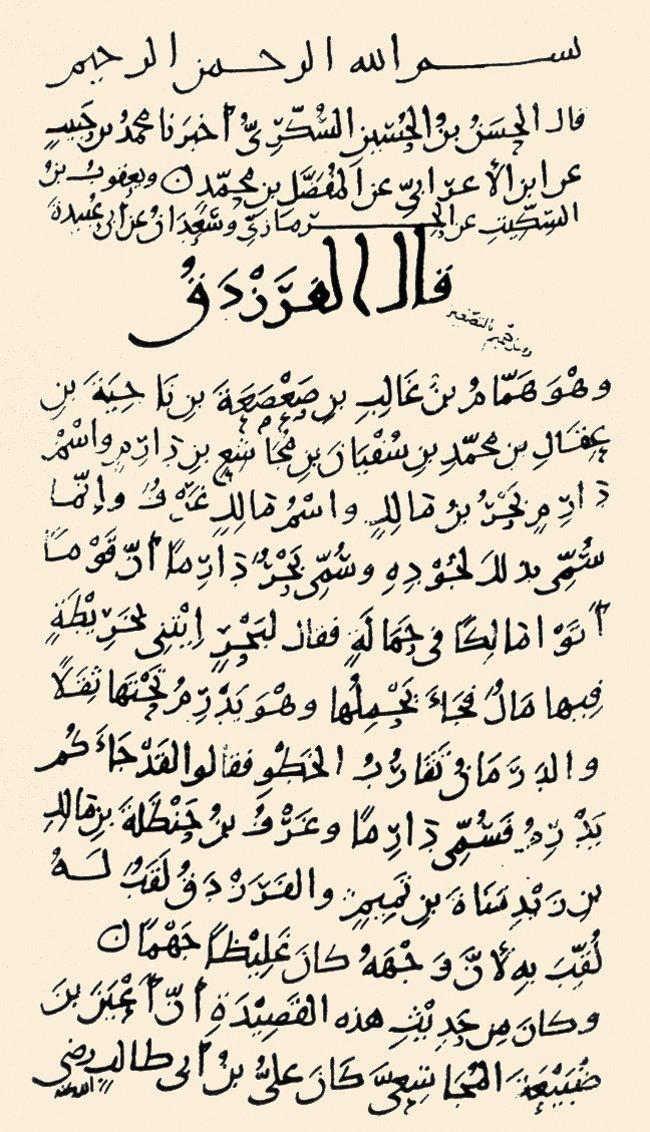 بسم الله الرحمن الرحيم
قال الحَسَنُ بنُ الحُسَينِ السُّكَّرِيُّ أخبرنا محمدُ بن حَبِيبٍ
عن ابن الأعرابيّ عن المُفَضَّلِ بن محمّدٍ ويعقوبُ بنُ
السِّكِّيتِ عن الحِرْمازيّ وسَعْدَانُ عن أبي عُبيدةَ
قال الفَرَزْدَقُ
وهْوَ هَمّامُ بنُ غَالِبِ بنِ صَعْصَعَةَ بنِ نَاجِيَةَ بنِ
عِقَالِ بن محمّدِ بنِ سُفْيانَ بنِ مُجاشعِ بنِ دَارِمٍ واسْمُ
دَارِمٍ بَحْرُ بنُ مَالِكٍ واسْمُ مَالِكٍ عَرْفٌ وإنّما
سُمِّيَ بذلكَ لجُودِهِ وسُمِّيَ بَحْرٌ دَارِمًا أنّ قَوْمًا
أتَوْا مَالِكًا في حَمَالَةٍ فقال لبَحْرٍ ايْتِنِي بخَرِيْطَةٍ
فيها مَالٌ فجَاءَ يَحْمِلُها وهْوَ يَدْرِمُ تَحْتَها ثِقَلًا
والدَّرَمَانُ تَقَارُبُ الخَطْوِ فقالوا لقَدْ جَاءَكُم
يَدْرِمُ فَسُمِّيَ دَارِمًا وعَرْفُ بنُ حَنْظَلَةَ بنِ مَالِكِ
بنِ زَيْدِ مَنَاةَ بنِ تَمِيمٍ والفَرَزْدَقُ لَقَبٌ لَهُ
لُقِّبَ بِهِ لأنَّ وَجْهَهُ كانَ غَلِيْظًا جَهْمًا
وكانَ مِن حَدِيْثِ هذه القَصِيْدَةِ أنّ أعْيَنَ بنَ
ضُبَيْعَةَ المُجَاشِعِيَّ كَانَ عَلِيُّ بنُ أبي طالبٍ رضي الله عنه